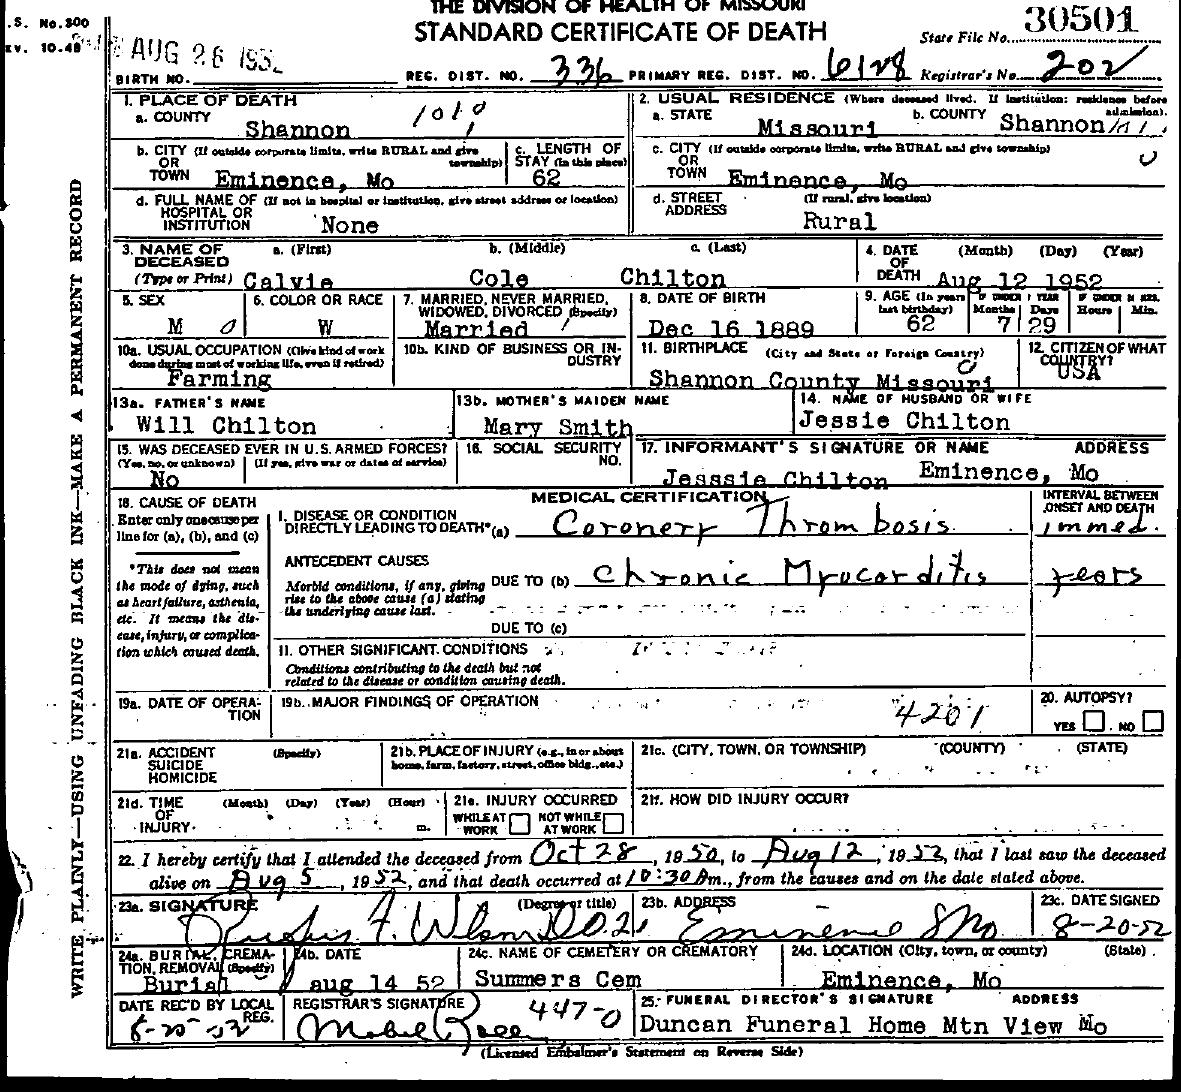 THE DIVISION OF HEALTH OF MISSOURI
STANDARD CERTIFICATE OF DEATH
.S. No.300
EV. 10-48
AUG 26 1952
State File No. 30501
BIRTH NO. REG. DIST. NO. 336 PRIMARY REG. DIST. NO. 6128 Registrar's No. 202
1. PLACE OF DEATH
a. COUNTY Shannon 1010
2. USUAL RESIDENCE (Where deceased lived. If institution: residence before admission).
a. STATE Missouri b. COUNTY Shannon
b. CITY (If outside corporate limits, write RURAL and give township)
OR
TOWN Eminence, Mo
c. LENGTH OF
STAY (in this place)
62
c. CITY (If outside corporate limits, write RURAL and give township)
OR
TOWN Eminence, Mo
d. FULL NAME OF (If not in hospital or institution, give street address or location)
HOSPITAL OR
INSTITUTION None
d. STREET (If rural, give location)
ADDRESS Rural
3. NAME OF
DECEASED
(Type or Print)
a. (First) b. (Middle) c. (Last)
Calvie Cole Chilton
4. DATE (Month) (Day) (Year)
OF
DEATH Aug 12 1952
5. SEX
M 0
6. COLOR OR RACE
W
7. MARRIED, NEVER MARRIED,
WIDOWED, DIVORCED (Specify)
Married 1
8. DATE OF BIRTH
Dec 16 1889
9. AGE (In years
last birthday)
62
IF UNDER 1 YEAR
Months Days
7 29
IF UNDER 24 HRS.
Hours Min.
10a. USUAL OCCUPATION (Give kind of work
done during most of working life, even if retired)
Farming
10b. KIND OF BUSINESS OR IN-
DUSTRY
11. BIRTHPLACE (City and State or Foreign Country)
Shannon County Missouri
12. CITIZEN OF WHAT
COUNTRY?
USA
13a. FATHER'S NAME
Will Chilton
13b. MOTHER'S MAIDEN NAME
Mary Smith
14. NAME OF HUSBAND OR WIFE
Jessie Chilton
15. WAS DECEASED EVER IN U.S. ARMED FORCES?
(Yes, no, or unknown) (If yes, give war or dates of service)
No
16. SOCIAL SECURITY
NO.
17. INFORMANT'S SIGNATURE OR NAME ADDRESS
Jesssie Chilton Eminence, Mo
18. CAUSE OF DEATH
Enter only one cause per
line for (a), (b), and (c)
*This does not mean
the mode of dying, such
as heart failure, asthenia,
etc. It means the dis-
ease, injury, or complica-
tion which caused death.
MEDICAL CERTIFICATION
I. DISEASE OR CONDITION
DIRECTLY LEADING TO DEATH*(a) Coronery Thrombosis
ANTECEDENT CAUSES
Morbid conditions, if any, giving
rise to the above cause (a) stating
the underlying cause last.
DUE TO (b) Chronic Myocorditis
DUE TO (c)
INTERVAL BETWEEN
ONSET AND DEATH
immed.
years
II. OTHER SIGNIFICANT CONDITIONS
Conditions contributing to the death but not
related to the disease or condition causing death.
19a. DATE OF OPERA-
TION
19b. MAJOR FINDINGS OF OPERATION
4201
20. AUTOPSY?
YES NO
21a. ACCIDENT (Specify)
SUICIDE
HOMICIDE
21b. PLACE OF INJURY (e.g., in or about
home, farm, factory, street, office bldg., etc.)
21c. (CITY, TOWN, OR TOWNSHIP) (COUNTY) (STATE)
21d. TIME (Month) (Day) (Year) (Hour)
OF
INJURY m.
21e. INJURY OCCURRED
WHILE AT WORK NOT WHILE AT WORK
21f. HOW DID INJURY OCCUR?
22. I hereby certify that I attended the deceased from Oct 28, 1950, to Aug 12, 1952, that I last saw the deceased
alive on Aug 5, 1952, and that death occurred at 10:30 Am., from the causes and on the date stated above.
23a. SIGNATURE (Degree or title)
D.O.
23b. ADDRESS
Eminence Mo
23c. DATE SIGNED
8-20-52
24a. BURIAL, CREMA-
TION, REMOVAL (Specify)
Burial
24b. DATE
aug 14 52
24c. NAME OF CEMETERY OR CREMATORY
Summers Cem
24d. LOCATION (City, town, or county) (State)
Eminence, Mo
DATE REC'D BY LOCAL
REG.
8-25-52
REGISTRAR'S SIGNATURE
447-0
25. FUNERAL DIRECTOR'S SIGNATURE ADDRESS
Duncan Funeral Home Mtn View Mo
(Licensed Embalmer's Statement on Reverse Side)
WRITE PLAINLY—USING UNFADING BLACK INK—MAKE A PERMANENT RECORD